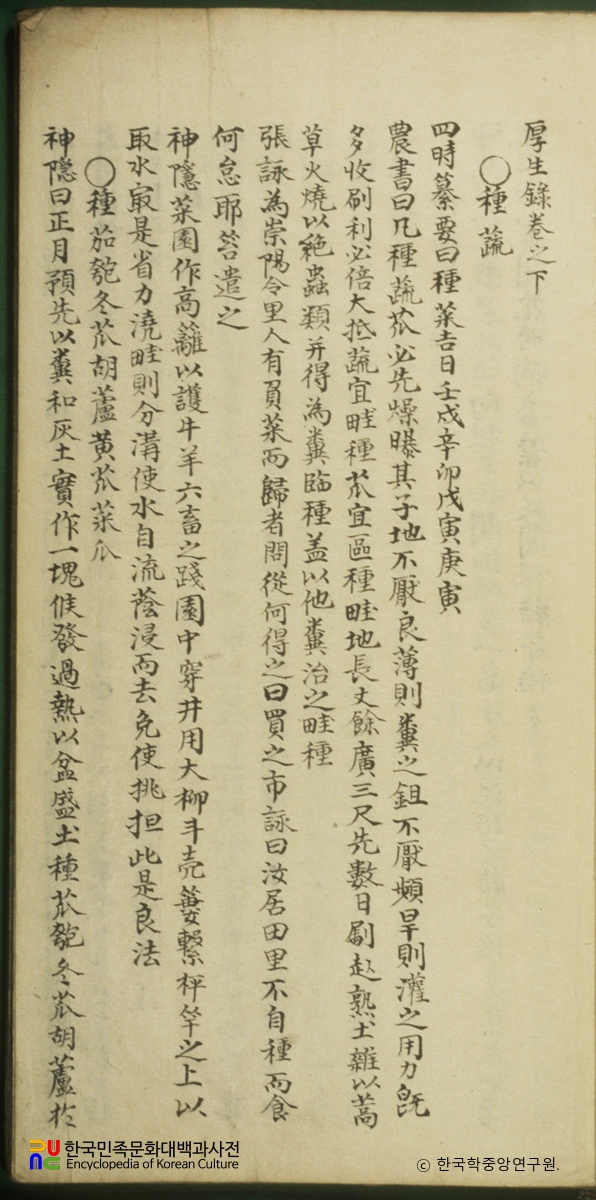 厚生錄卷之下
○種蔬
四時纂要曰種菜吉日壬戌辛卯戊寅庚寅
農書曰凡種蔬苽必先燥曝其子地不厭良薄則糞之鉏不厭頻旱則灌之用力旣
多收刷利必倍大抵蔬宜畦種苽宜區種畦地長丈餘廣三尺先數日劚起熟土雜以蒿
草火燒以絶蟲類并得為糞臨種盖以他糞治之畦種
張詠為崇陽令里人有負菜而歸者問從何得之曰買之市詠曰汝居田里不自種而食
何怠耶笞遣之
神隱菜園作高籬以護牛羊六畜之踐園中穿井用大柳斗壳蔞繫枰竿之上以
取水㝡是省力澆畦則分溝使水自流蔭浸而去免使挑担此是良法
○種茄匏冬苽胡蘆黃苽菜瓜
神隱曰正月預先以糞和灰土實作一塊候發過熱以盆盛土種苽匏冬苽胡蘆於
한국민족문화대백과사전
Encyclopedia of Korean Culture
© 한국학중앙연구원.